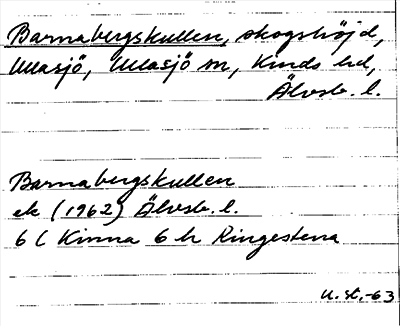 Barnabergskullen, skogshöjd,
Ullasjö, Ullasjö sn, Kinds hd,
Älvsb. l.
Barnabergskullen
ek (1962) Älvsb. l.
6 C Kinna 6 h Ringestena
U. St. -63